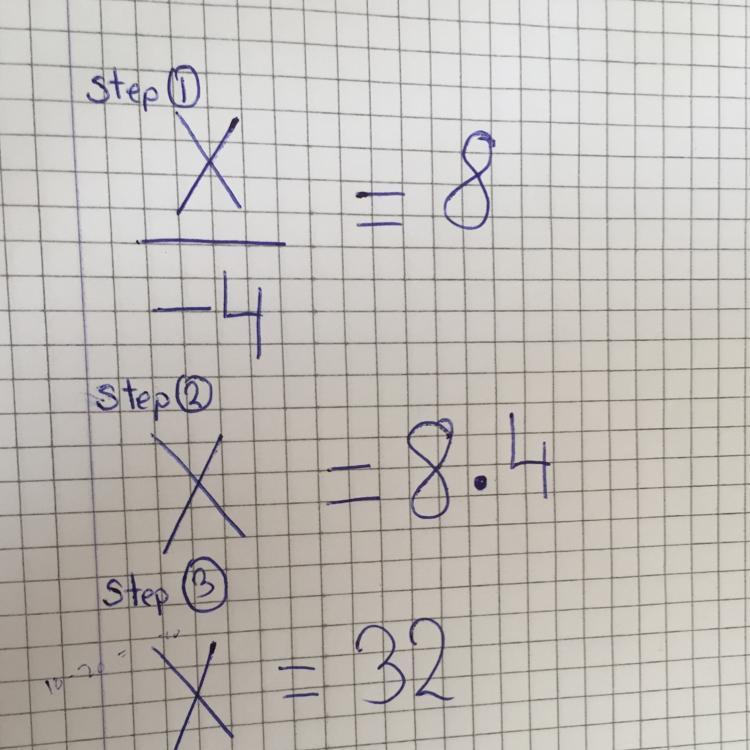 Step ①
X
— = 8
-4
Step ②
X = 8 · 4
Step ③
X = 32